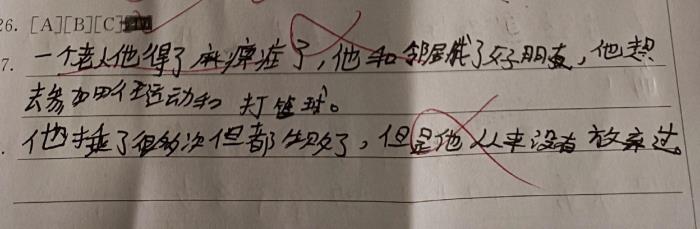 26. [A][B][C]
7. 一个老人他得了麻痹症了，他和邻居成了好朋友，他想
去参加田径运动和 打篮球。
他摔了很多次但都失败了，但是他从来没有放弃过。